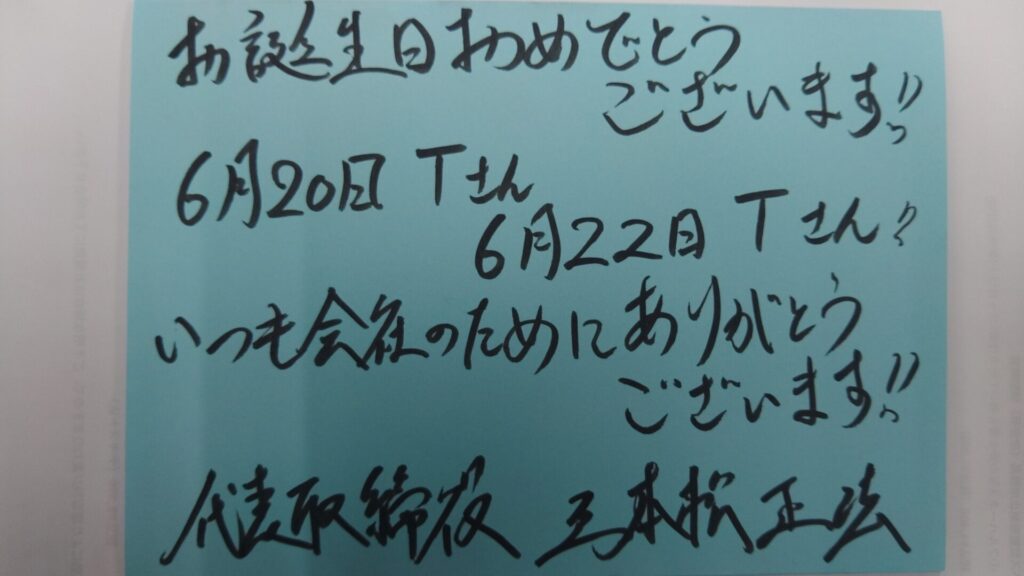 お誕生日おめでとう
ございます!!
6月20日 Tさん
6月22日 Tさん!!
いつも会社のためにありがとう
ございます!!
代表取締役 三本松 正法